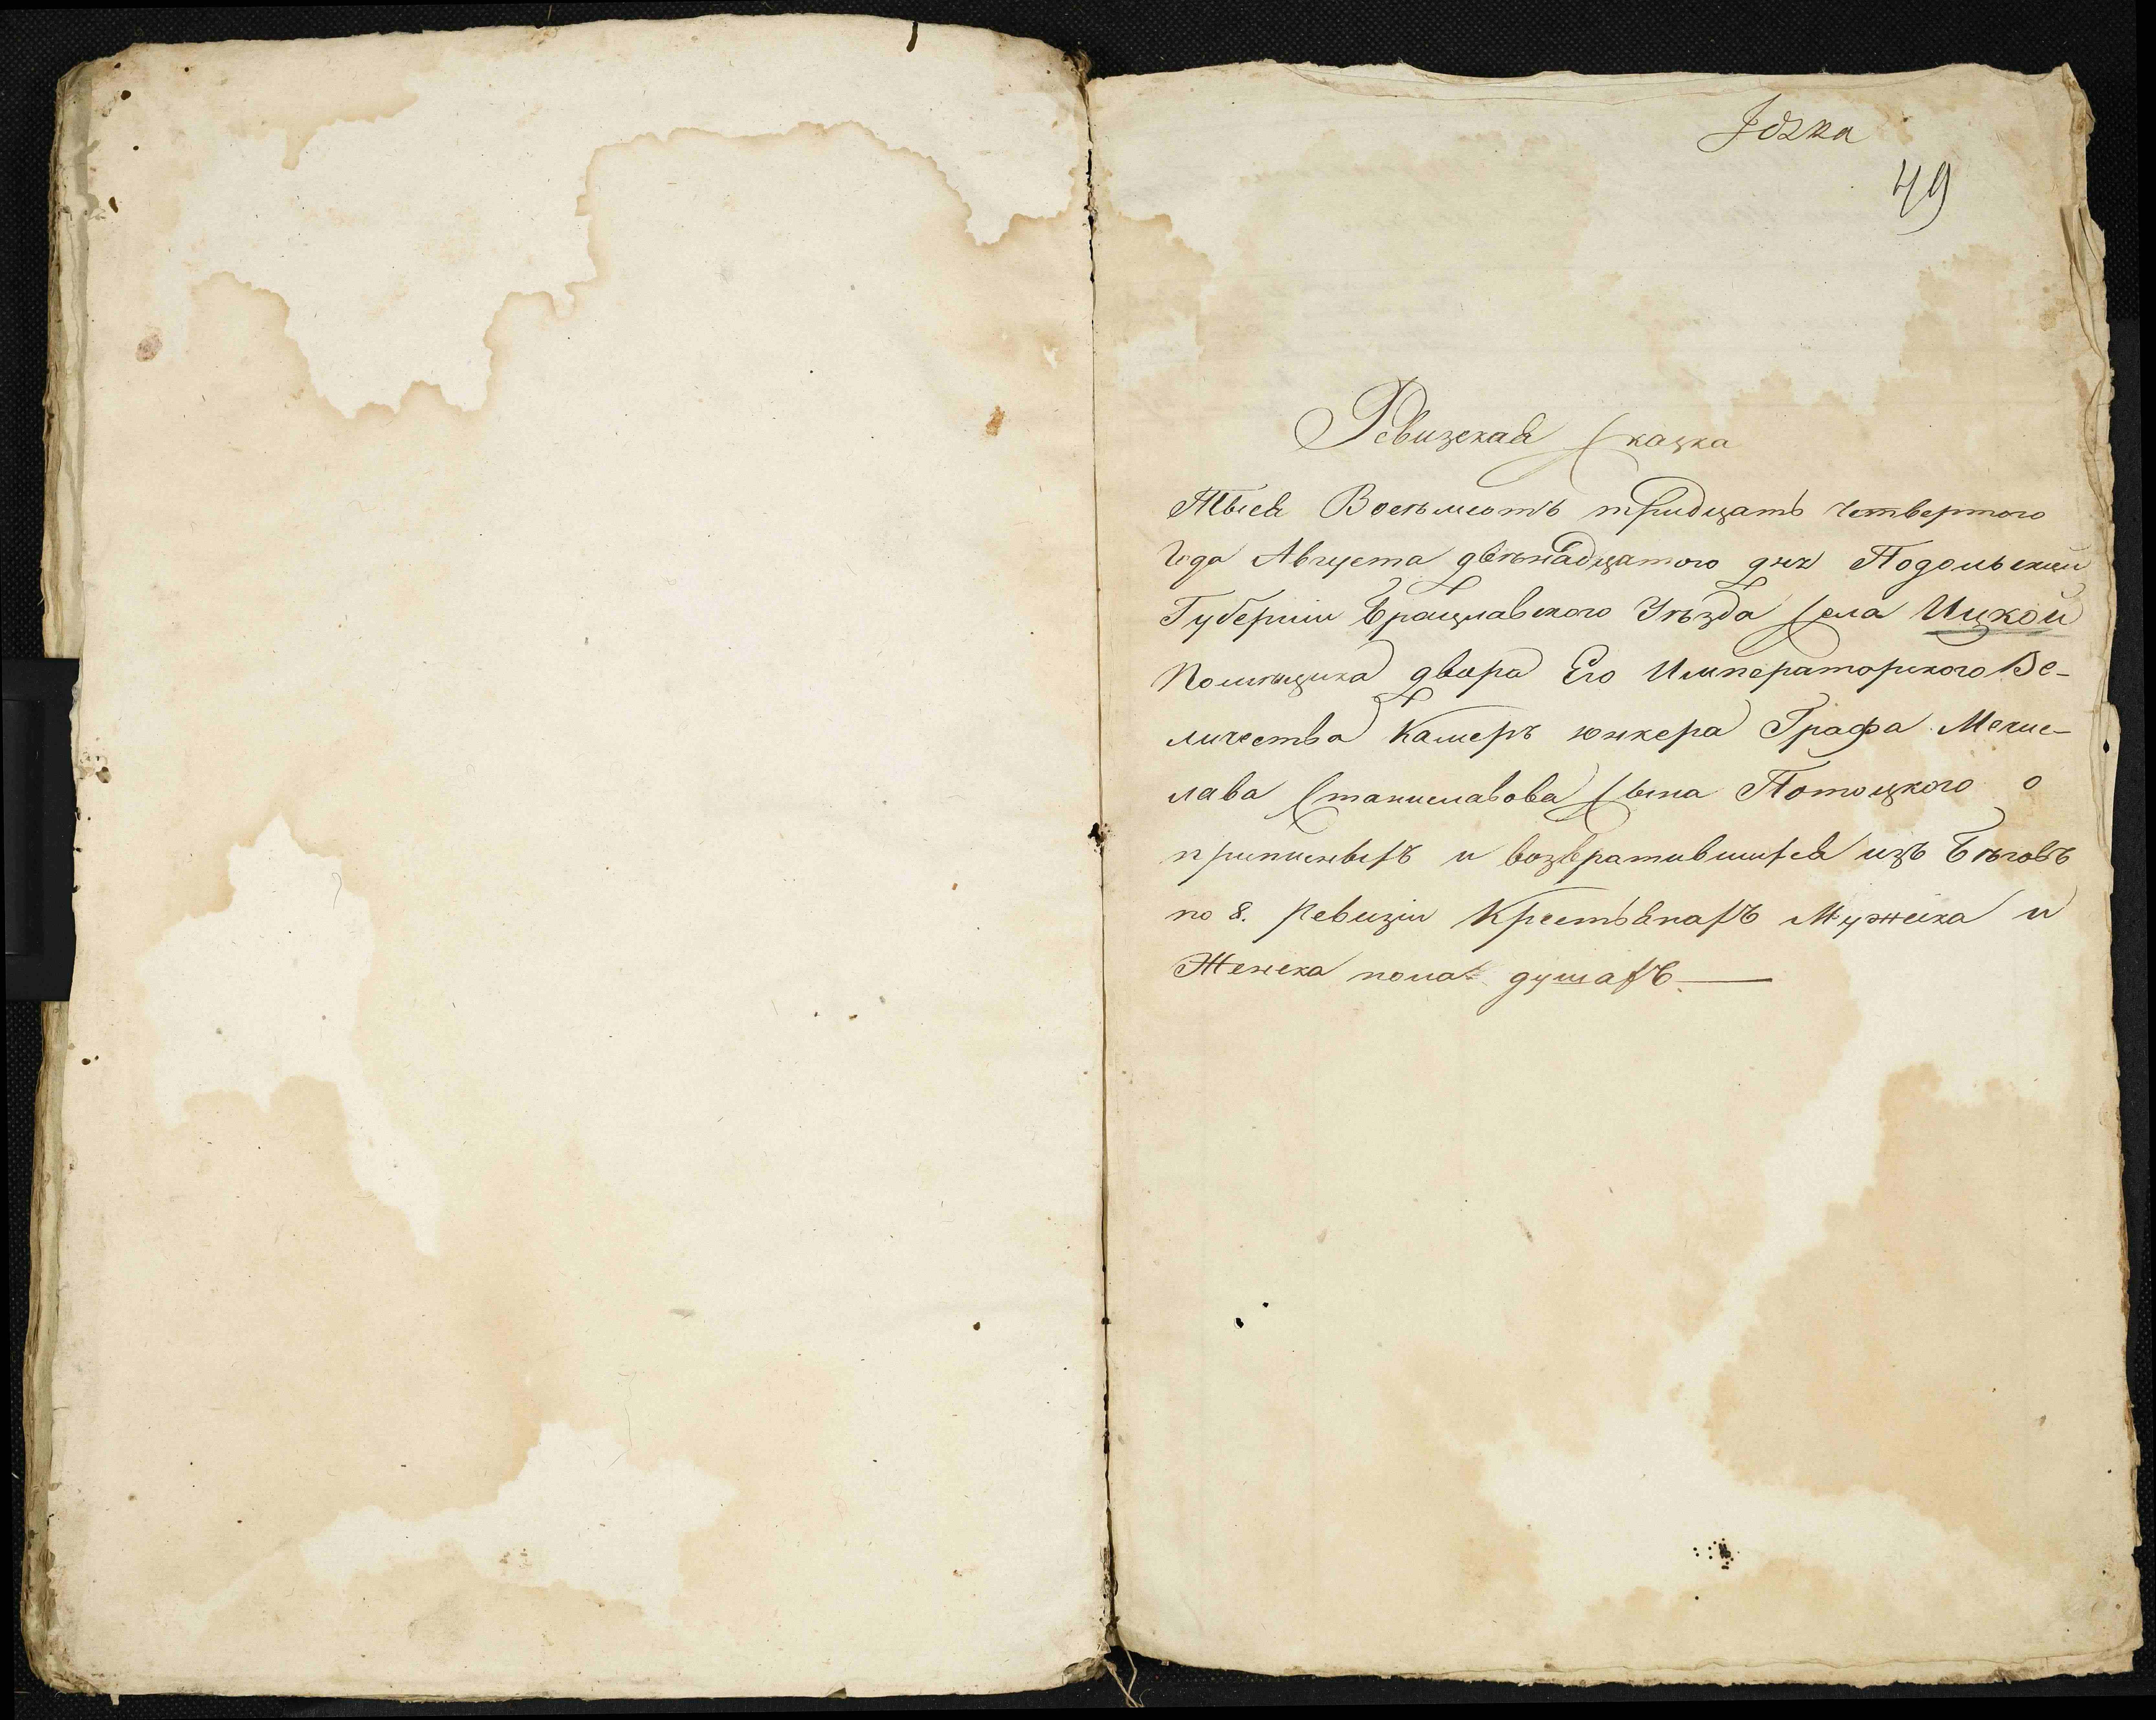 49
Ревизская сказка
Тысяча Восемьсотъ тридцать четвертого
Года Августа двѣнадцатого дня Подольской
Губерніи Брацлавского Уѣзда села Ицкой
Помѣщика двора Его Императорского Ве-
личества Камеръ юнкера Графа Мечис-
лава Станиславова сына Потоцкого о
приписныхъ и возвратившихся изъ Бѣговъ
по 8. Ревизіи Крестьянахъ Мужеска и
Женска пола душахъ